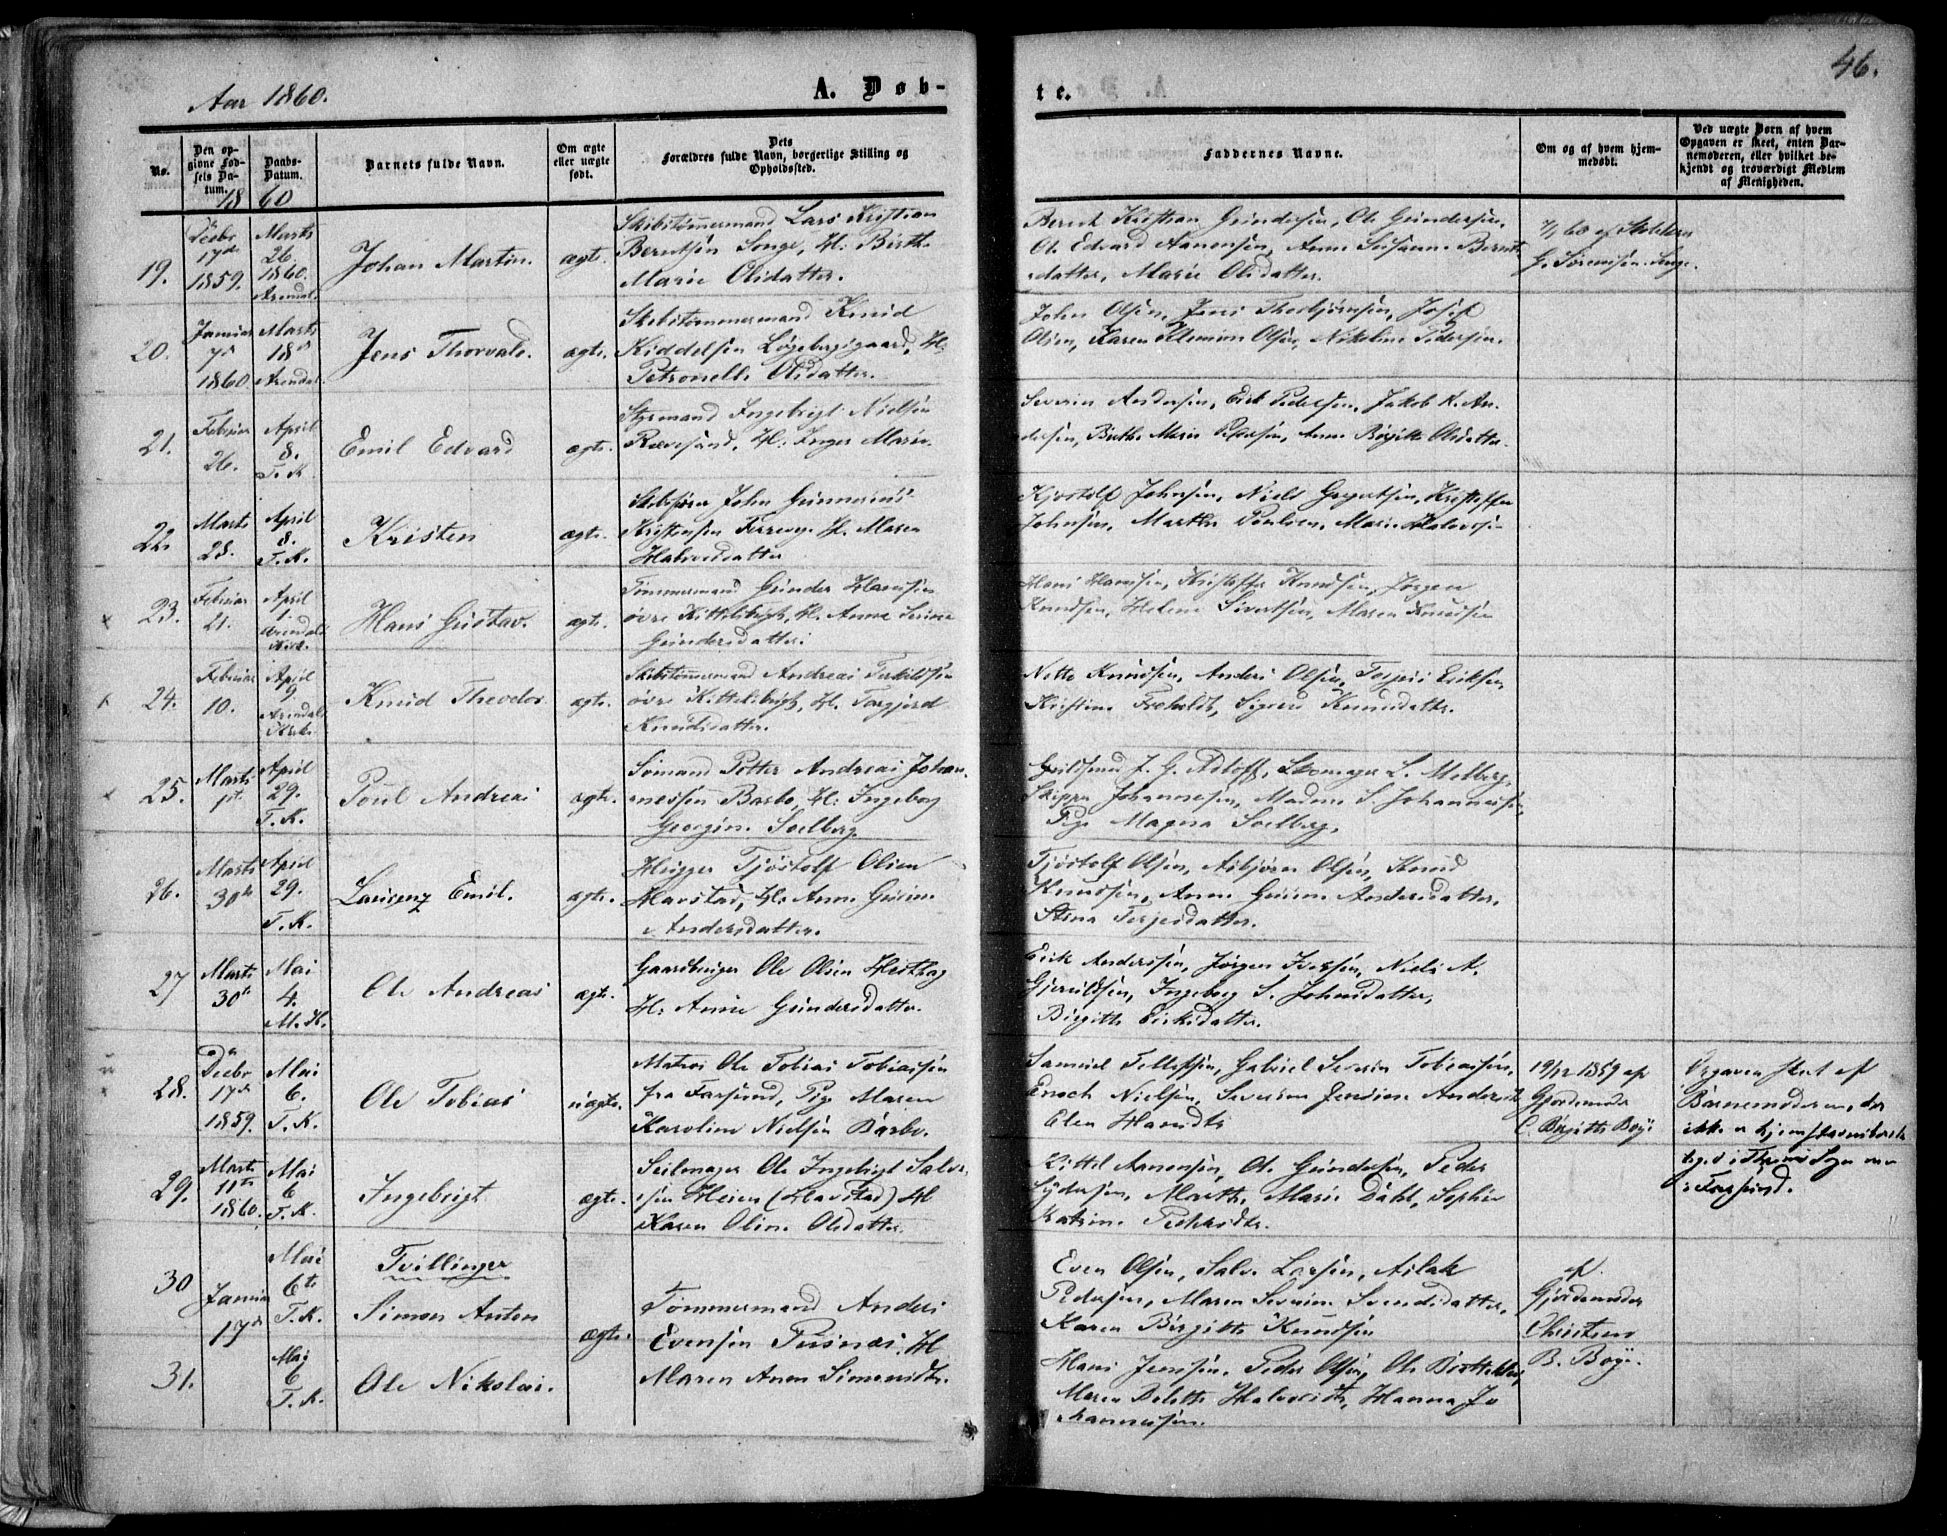 46.
Aar 1860.
A. Døb-
te.
No.
Den opgivne Fødsels Datum.
Daabs-Datum.
Barnets fulde Navn.
Om ægte eller uægte født.
Dets Forældres fulde Navn, borgerlige Stilling og Opholdssted.
Faddernes Navne.
Om og af hvem hjemmedøbt.
Ved uægte Børn af hvem Opgaven er skeet, enten Barnemoderen, eller hvilket bekjendt og troværdigt Medlem af Menigheden.
1860
19.
Decbr 17de 1859.
Marts 26. 1860. Arendal.
Johan Martin.
ægte.
Skibstømmermand Lars Kristian
Berntsen Songe, H: Birthe
Marie Olsdatter.
Bernt Kristian Gundersen, Ole Gundersen,
Ole Edvard Aanonsen, Anne Susanne Bernts
datter, Marie Olsdatter.
G. Sørensen Songe.
20.
Januar 7de 1860
Marts 18de Arendal.
Jens Thorvald.
ægte.
Skibstømmermand Knud
Kiddelsen Løgebergsgaard, H:
Petronelle Olsdatter.
John Olsen, Jens Thorbjørnsen, Josef
Olsen, Karen Olsen, Nikoline Pedersen.
21.
Februar 26.
April 8. T. K.
Emil Edvard
ægte.
Styrmand Ingebrigt Nielsen
Rævesand, H. Inger Marie.
Severin Andersen, Erik Pedersen, Jakob K. An-
dersen, Birthe Marie Pedersen, Anne Birgitte Olsdatter.
22.
Marts 28.
April 8. T. K.
Kristen
ægte.
Skibsfører John Gunnerius
Kristensen H. Maren
Halvorsdatter
Kjøstolf Johnsen, Niels Gregertsen, Kristoffer
Johnsen, Marthe Poulsen, Marie Halvorsen
23.
Februar 21.
April 1. Arendals Kirke.
Hans Gustav.
ægte.
Tømmermand Gunder Hansen
øvre Kittelsbugt, H. Anne Serine
Gundersdatter.
Hans Hansen, Kristoffer Knudsen, Jørgen
Knudsen, Helene Sivertsen, Maren Knudsen
24.
Februar 10.
April 9. Arendals Kirke
Knud Theodor.
ægte.
Skibstømmermand Andreas Terkildsen
øvre Kittelsbugt, H. Torgjerd
Knudsdatter.
Knudsen, Anders Olsen, Eriksen,
Kristine Froholdt, Sigrid Knudsdatter.
25.
Marts 1ste.
April 29. T. K.
Poul Andreas
ægte.
Sømand Petter Andreas Johan-
nessen Barbo, H: Ingeborg
Georgine Solberg
J. G. Adloff, Skomager L. Melberg,
Skipper Johannesen, Madam S. Johannesen,
Pige Magna Solberg.
26.
Marts 30te
April 29. T. K.
Laurenz Emil.
ægte.
Hugger Tjøstolf Olsen
Havstad, H. Anne Gurine
Andersdatter.
Tjøstolf Olsen, Asbjørn Olsen, Knud
Knudsen, Anne Gurine Andersdatter,
Stina Terjesdatter.
27
Marts 30te
Mai 4. M. K.
Ole Andreas
ægte.
Gaardbruger Ole Olsen Hesthag
H: Anne Gundersdatter.
Erik Andersen, Jørgen Iversen, Niels A.
Gjeruldsen, Ingeborg S. Johnsdatter,
Birgitte Eriksdatter.
28.
Decbr 17de 1859.
Mai 6. T. K.
Ole Tobias
uægte.
Matros Ole Tobias Tobiassen
fra Farsund, Pige Maren
Karoline Nielsen Barbo.
Samuel Tellefsen, Gabriel Severin Tobiassen,
Enoch Nielsen, Severine Jensine Andersd.
Olea Hansdtr
19/12 1859 af
Gjordemoder
C. Birgitte Boye
Opgaven skeet af
Barnemoderen, der
ikke er hjemstavnsberet-
tiget i Sogn men
i Farsund.
29.
Marts 11te 1860.
Mai 6 T. K.
Ingebrigt
ægte.
Seilmager Ole Ingebrigt Salve-
sen Heien (Havstad) H
Karen Oline Olsdatter.
Kittel Aanonsen, Ole Gundersen, Peder
Pedersen, Marthe Marie Dahl, Sophie
Katrine
30
Januar 17de
Mai 6te T. K.
Tvillinger
Simon Anton
ægte.
Tømmermand Anders
Evensen Pusnæs. H
Maren Anne Simonsdtr.
Even Olsen, Salve Larsen, Aslak
Pedersen, Maren Severine Svendsdatter,
Karen Birgitte Knudsen
af.
Gjordemoder
Christine
B. Boye.
31.
Mai 6 T. K.
Ole Nikolai.
Hans Jensen, Peder Olsen, Ole
Maren Halvorsdtr, Hanna Jo
hannessen.